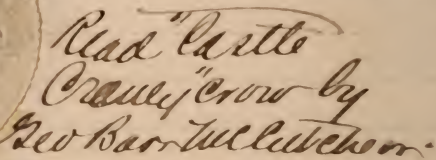 Read "Castle
Craney" crow by
Geo Barr McCutcheon.